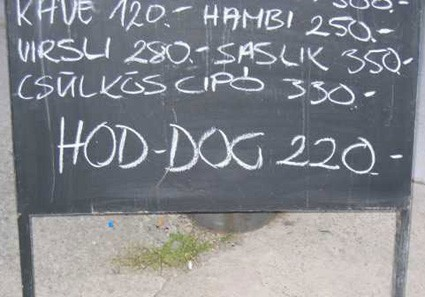 KÁVÉ 120.- HAMBI 250.-
VIRSLI 280.- SASLIK 350.-
CSÜLKÖS CIPÓ 330.-
HOD-DOG 220.-